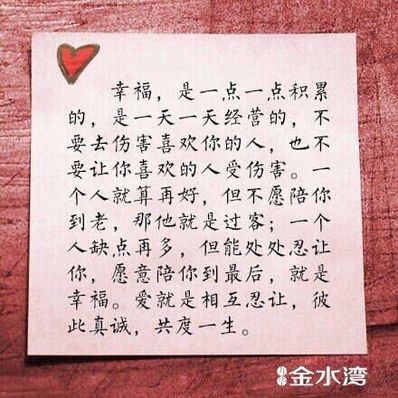 幸福，是一点一点积累
的，是一天一天经营的，不
要去伤害喜欢你的人，也不
要让你喜欢的人受伤害。一
个人就算再好，但不愿陪你
到老，那他就是过客；一个
人缺点再多，但能处处忍让
你，愿意陪你到最后，就是
幸福。爱就是相互忍让，彼
此真诚，共度一生。
金水湾